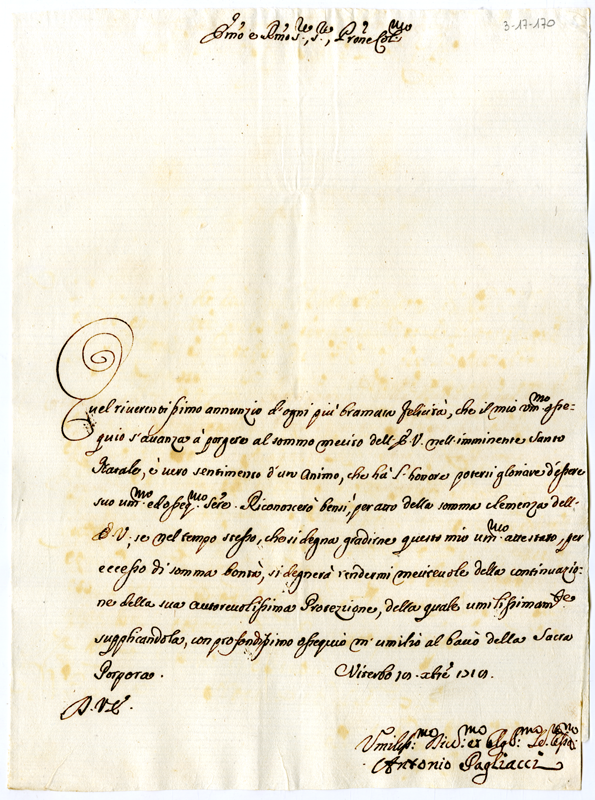 3-17-170
Emo e Rmo Sre, Sre, Prone Colmo
Quel riverentissimo annunzio d'ogni più bramata felicità, che il mio ummo osse-
quio s'avanza à porgere al sommo merito dell'E.V. nell'imminente Santo
Natale, è vero sentimento d'un Animo, che hà l'honore potersi gloriare d'essere
suo ummo ed osseqmo serre. Riconoscerò bensì, per atto della somma clemenza dell'
E.V, se nel tempo stesso, che si degna gradirne questo mio ummo attestato, per
eccesso di somma bontà, si degnerà rendermi meritevole della continuazio-
ne della sua autorevolissima Protezione, della quale umilissimamte
supplicandola, con profondissimo ossequio m'umilio al bacio della Sacra
Porpora. Viterbo 19. xbre 1719.
D.V.E.
Umilissmo
Antonio Pagliacci